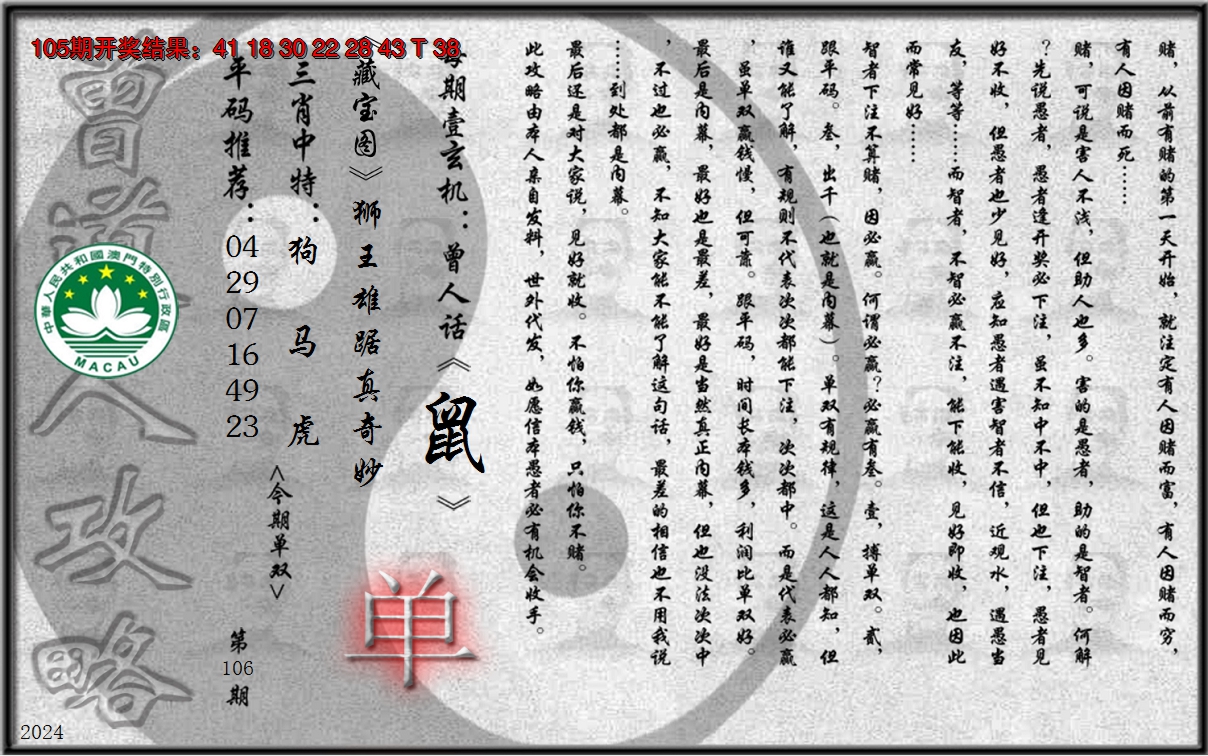 105期开奖结果：41 18 30 22 28 43 T 38
赌，从前有赌的第一天开始，就注定有人因赌而富，有人因赌而穷，
有人因赌而死……
赌，可说是害人不浅，但助人也多。害的是愚者，助的是智者。何解
？先说愚者，愚者逢开奖必下注，虽不知中不中，但也下注，愚者见
好不收，但愚者也少见好，应知愚者遇害智者不信，近观水，遇愚当
友，等等……而智者，不智必赢不注，能下能收，见好即收，也因此
而常见好……
智者下注不算赌，因必赢。何谓必赢？必赢有叁。壹，搏单双。贰，
跟平码。叁，出千（也就是内幕）。单双有规律，这是人人都知，但
谁又能了解，有规则不代表次次都能下注，次次都中。而是代表必赢
，虽单双赢钱慢，但可靠。跟平码，时间长本钱多，利润比单双好。
最后是内幕，最好也是最差，最好是当然真正内幕，但也没法次次中
，不过也必赢，不知大家能不能了解这句话，最差的相信也不用我说
……到处都是内幕。
最后还是对大家说，见好就收。不怕你赢钱，只怕你不赌。
此攻略由本人亲自发料，世外代发，如愿信本愚者必有机会收手。
每期壹玄机：曾人话《鼠》
《藏宝图》狮王雄踞真奇妙
单
三肖中特：狗 马 虎
<今期单双>
平码推荐：04 29 07 16 49 23
第106期
曾道人攻略
中華人民共和國澳門特別行政區
MACAU
2024